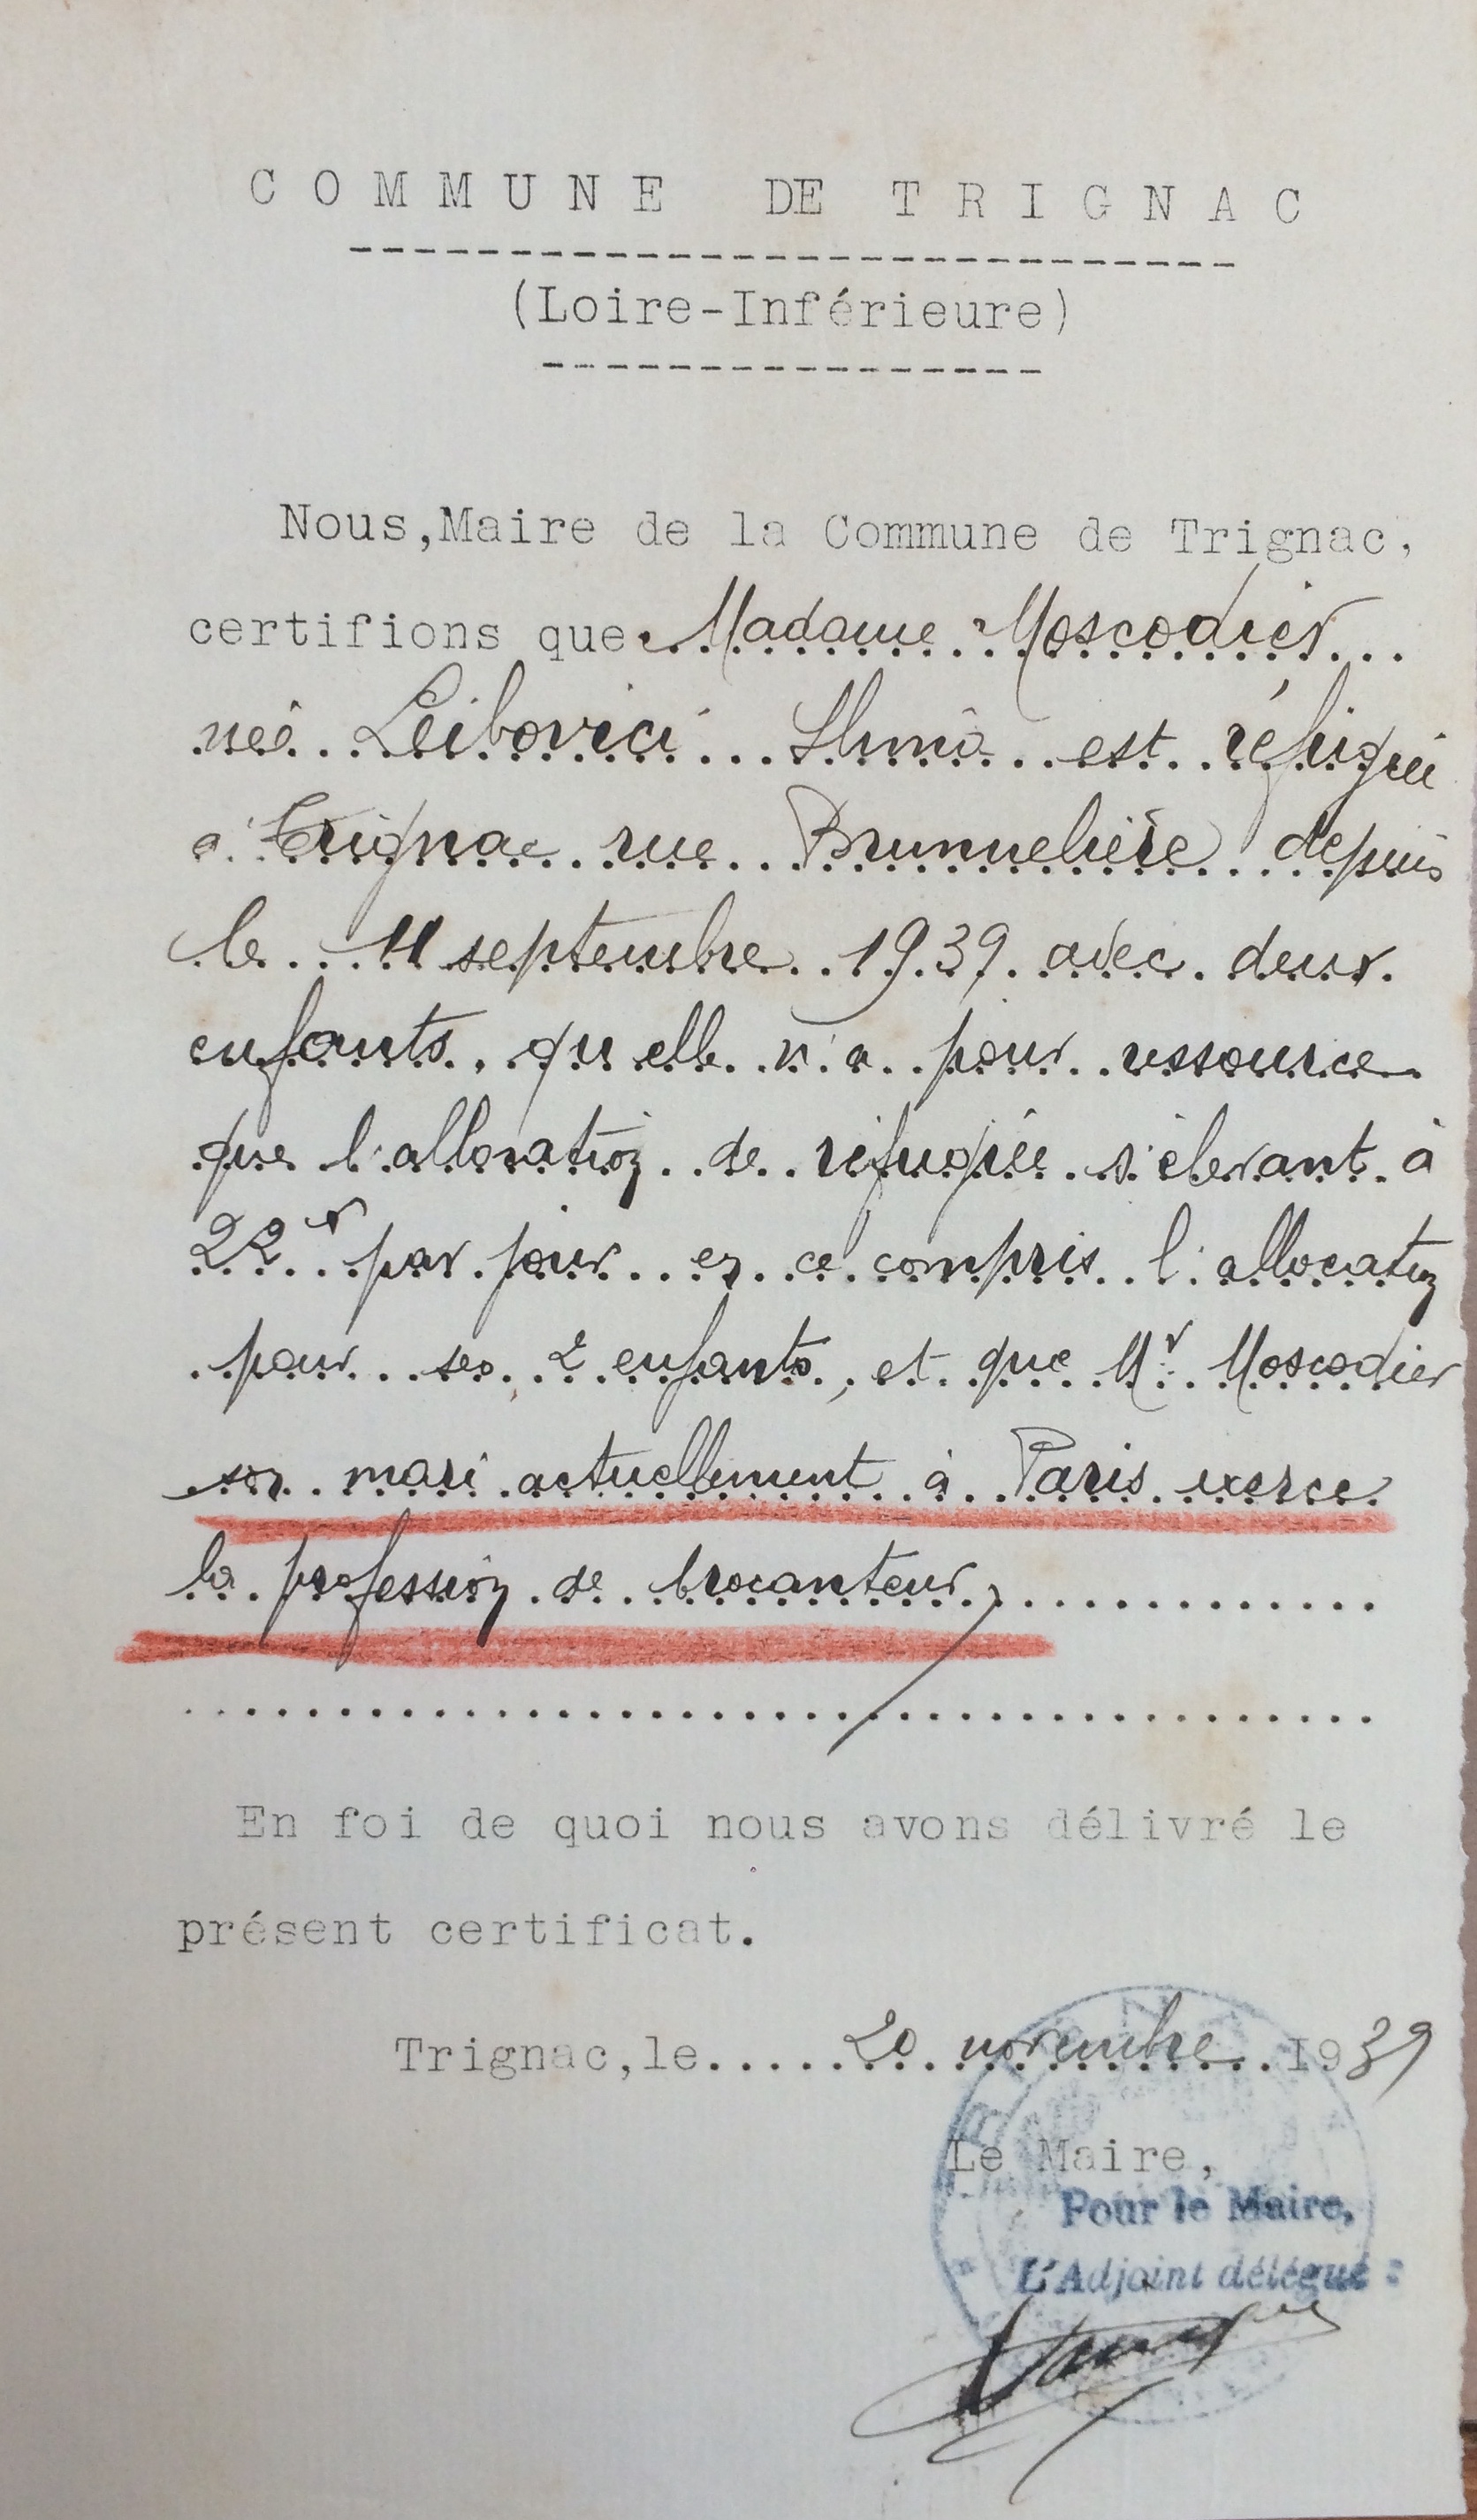 COMMUNE DE TRIGNAC
(Loire-Inférieure)
Nous, Maire de la Commune de Trignac,
certifions que Madame Moscodier
née Leibovici est réfugiée
à Trignac rue Brunnelière depuis
le 11 septembre 1939 avec deux
enfants, qu'elle n'a pour ressource
que l'allocation de réfugiée s'élevant à
22 par jour en ce compris l'allocation
pour ses 2 enfants, et que Mr Moscodier
son mari actuellement à Paris exerce
la profession de brocanteur
En foi de quoi nous avons délivré le
présent certificat.
Trignac, le 20 novembre 1939
Le Maire,
Pour le Maire,
L'Adjoint délégué :